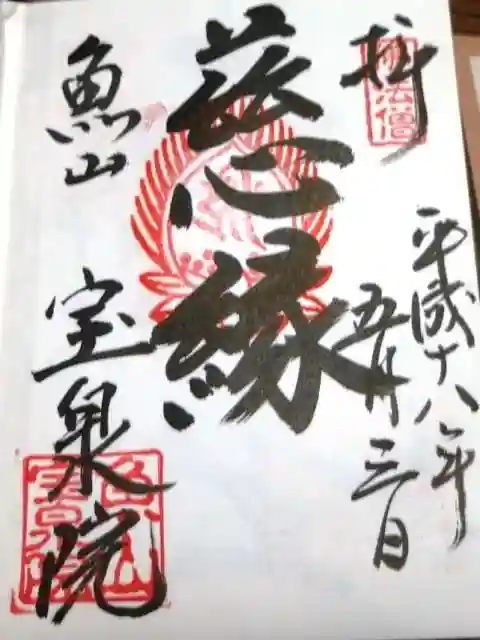 拝
佛法僧
平成十八年
五月三日
慈縁
魚山
宝泉院